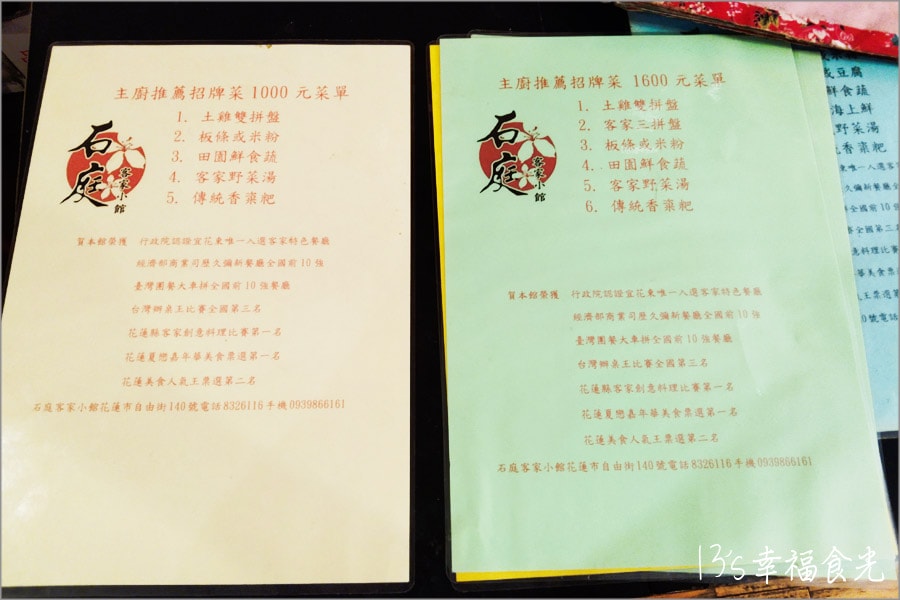 主廚推薦招牌菜 1000 元菜單
1. 土雞雙拼盤
2. 板條或米粉
3. 田園鮮食蔬
4. 客家野菜湯
5. 傳統香棗粑
石庭
客家小館
賀本館榮獲 行政院認證宜花東唯一入選客家特色餐廳
經濟部商業司歷久彌新餐廳全國前10強
臺灣團餐大車拼全國前10強餐廳
台灣辦桌王比賽全國第三名
花蓮縣客家創意料理比賽第一名
花蓮夏戀嘉年華美食票選第一名
花蓮美食人氣王票選第二名
石庭客家小館花蓮市自由街140號電話8326116手機0939866161
主廚推薦招牌菜 1600 元菜單
1. 土雞雙拼盤
2. 客家三拼盤
3. 板條或米粉
4. 田園鮮食蔬
5. 客家野菜湯
6. 傳統香棗粑
石庭
客家小館
賀本館榮獲 行政院認證宜花東唯一入選客家特色餐廳
經濟部商業司歷久彌新餐廳全國前10強
臺灣團餐大車拼全國前10強餐廳
台灣辦桌王比賽全國第三名
花蓮縣客家創意料理比賽第一名
花蓮夏戀嘉年華美食票選第一名
花蓮美食人氣王票選第二名
石庭客家小館花蓮市自由街140號電話8326116手機0939866161
豆腐
鮮食蔬
海上鮮
野菜湯
統香棗粑
唯一入選客
餐廳全國前10
全國前10強
賽全國第三名
料理比賽
華美食票選第
票選第二
號電話
13's幸福食光